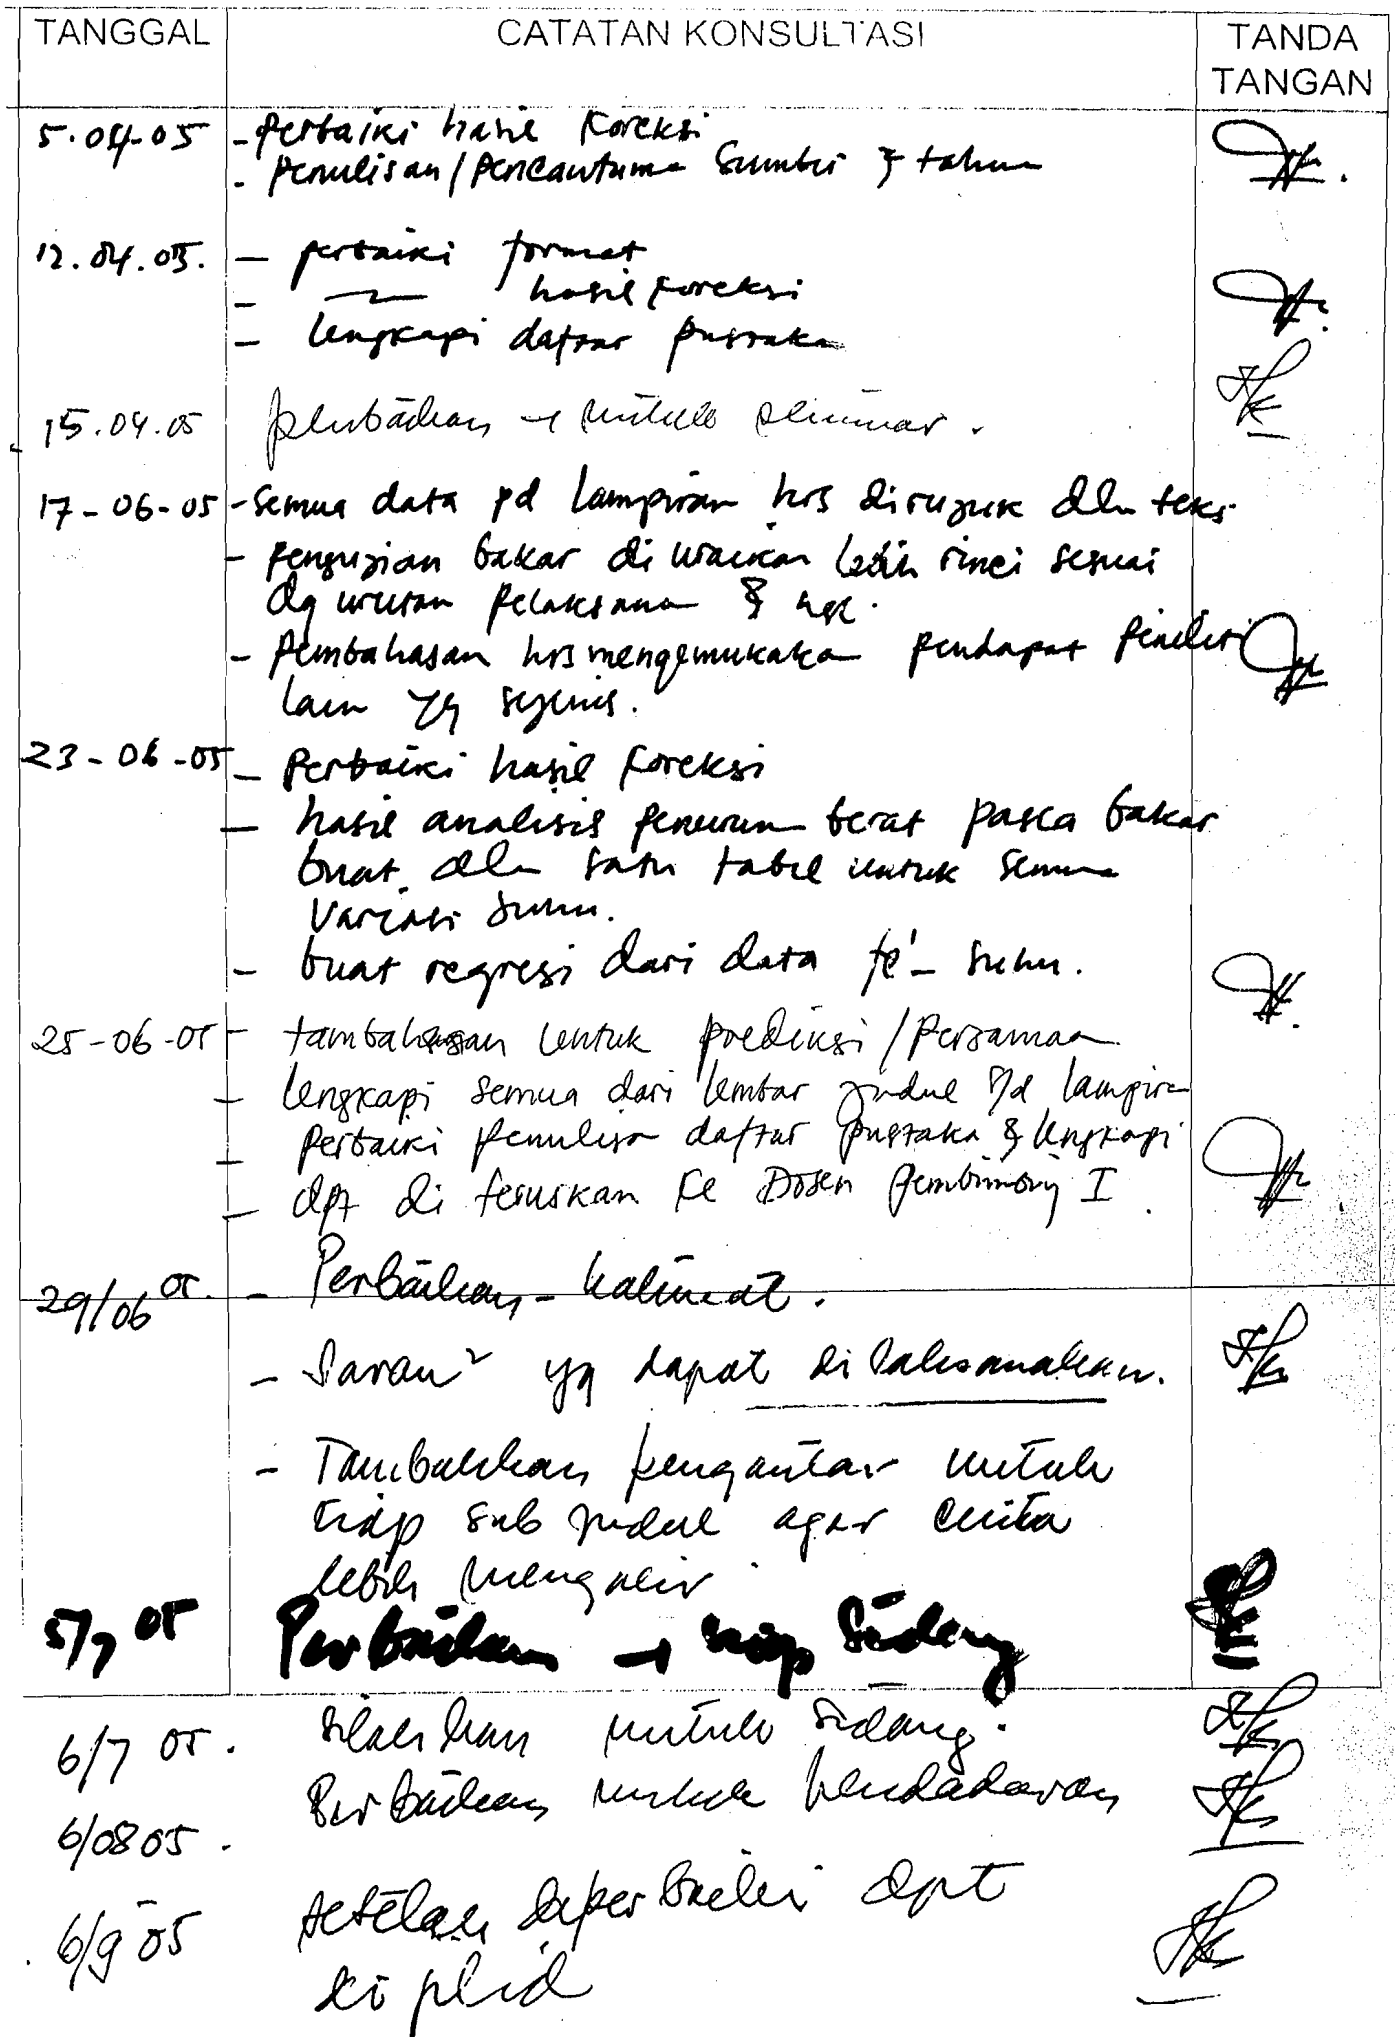 TANGGAL CATATAN KONSULTASI TANDA
TANGAN
5.04-05 - Perbaiki hasil koreksi
- Penulisan/Pencantuman Sumber & tahun
12.04.05. - perbaiki format
- hasil koreksi
- lengkapi daftar pustaka
15.04.05 perbaikan → untuk seminar.
17-06-05 - Semua data pd lampiran hrs dirujuk dlm teks
- pengujian bakar diuraikan lebih rinci sesuai
dg urutan pelaksanaan &
- Pembahasan hrs mengemukakan pendapat peneliti
lain yg sejenis.
23-06-05 - Perbaiki hasil koreksi
- hasil analisis penurunan berat pasca bakar
buat dlm satu tabel untuk semua
Variasi suhu.
- buat regresi dari data fc' - suhu.
25-06-05 - tambahasan untuk prediksi/Persamaan
- lengkapi semua dari lembar judul s/d lampiran
- Perbaiki penulisan daftar pustaka & lengkapi
- dpt di teruskan ke Dosen Pembimbing I
29/06 05. - Perbaikan - kalimat.
- Saran² yg dapat dilaksanakan.
- Tambahkan pengantar untuk
tiap sub judul agar cerita
lebih mengalir
5/7 05 Perbaikan → siap Sidang
6/7 05. silahkan untuk sidang.
6/08 05. Perbaikan untuk pendadaran
6/9 05 setelah diperbaiki dpt
di jilid